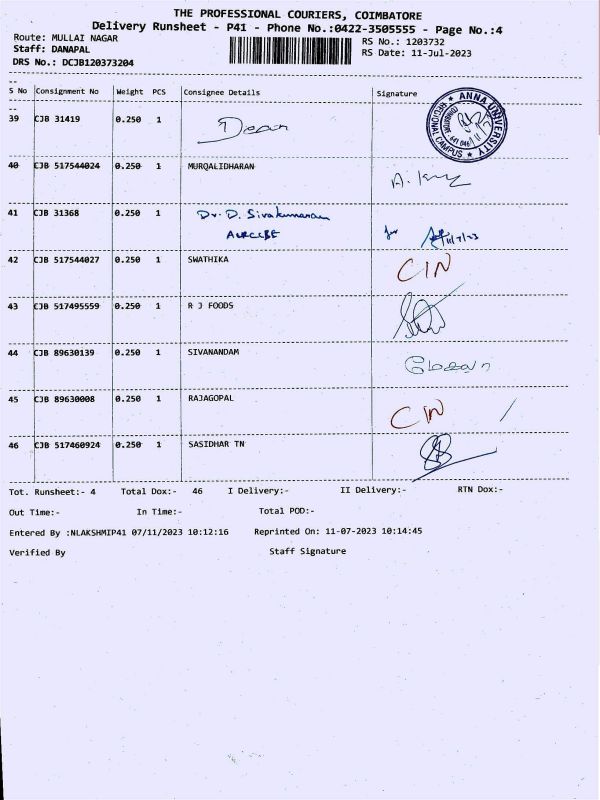 THE PROFESSIONAL COURIERS, COIMBATORE
Delivery Runsheet - P41 - Phone No.:0422-3505555 - Page No.:4
Route: MULLAI NAGAR RS No.: 1203732
Staff: DANAPAL RS Date: 11-Jul-2023
DRS No.: DCJB120373204
S No Consignment No Weight PCS Consignee Details Signature
39 CJB 31419 0.250 1 Dean
ANNA UNIVERSITY
REGIONAL CAMPUS
40 CJB 517544024 0.250 1 MURQALIDHARAN
41 CJB 31368 0.250 1 Dr. D. Sivakumaran
AURCCBE for 11/7/23
42 CJB 517544027 0.250 1 SWATHIKA CIN
43 CJB 517495559 0.250 1 R J FOODS
44 CJB 89630139 0.250 1 SIVANANDAM
45 CJB 89630008 0.250 1 RAJAGOPAL CIN
46 CJB 517460924 0.250 1 SASIDHAR TN
Tot. Runsheet:- 4 Total Dox:- 46 I Delivery:- II Delivery:- RTN Dox:-
Out Time:- In Time:- Total POD:-
Entered By :NLAKSHMIP41 07/11/2023 10:12:16 Reprinted On: 11-07-2023 10:14:45
Verified By Staff Signature